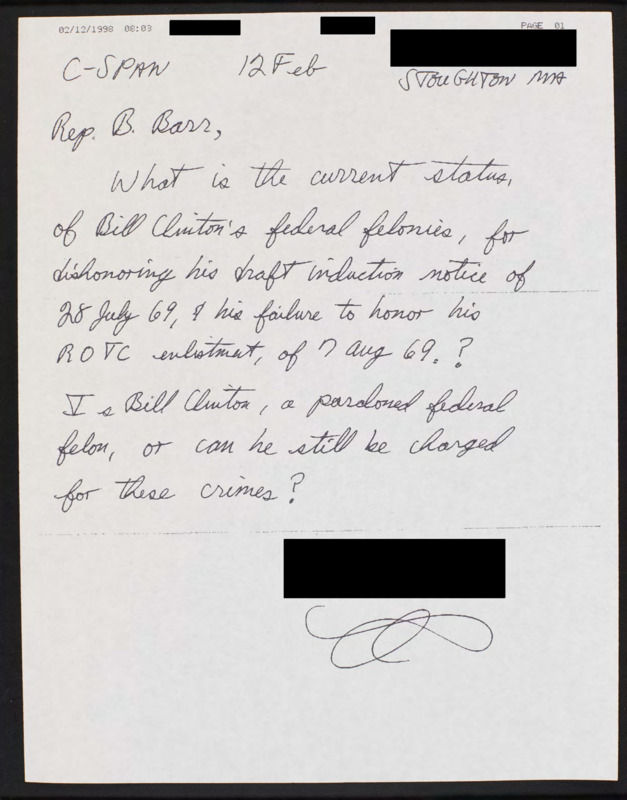 02/12/1998 08:03 PAGE 01
C-SPAN 12 Feb
STOUGHTON MA
Rep. B. Barr,
What is the current status,
of Bill Clinton's federal felonies, for
dishonoring his draft induction notice of
28 July 69, & his failure to honor his
ROTC enlistment, of 7 Aug 69.?
Is Bill Clinton, a pardoned federal
felon, or can he still be charged
for these crimes?